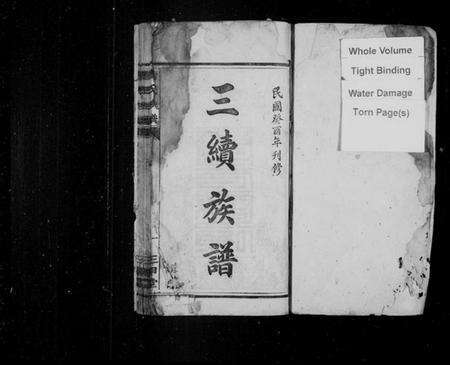 民國癸酉年刊修
三續族譜
Whole Volume
Tight Binding
Water Damage
Torn Page(s)